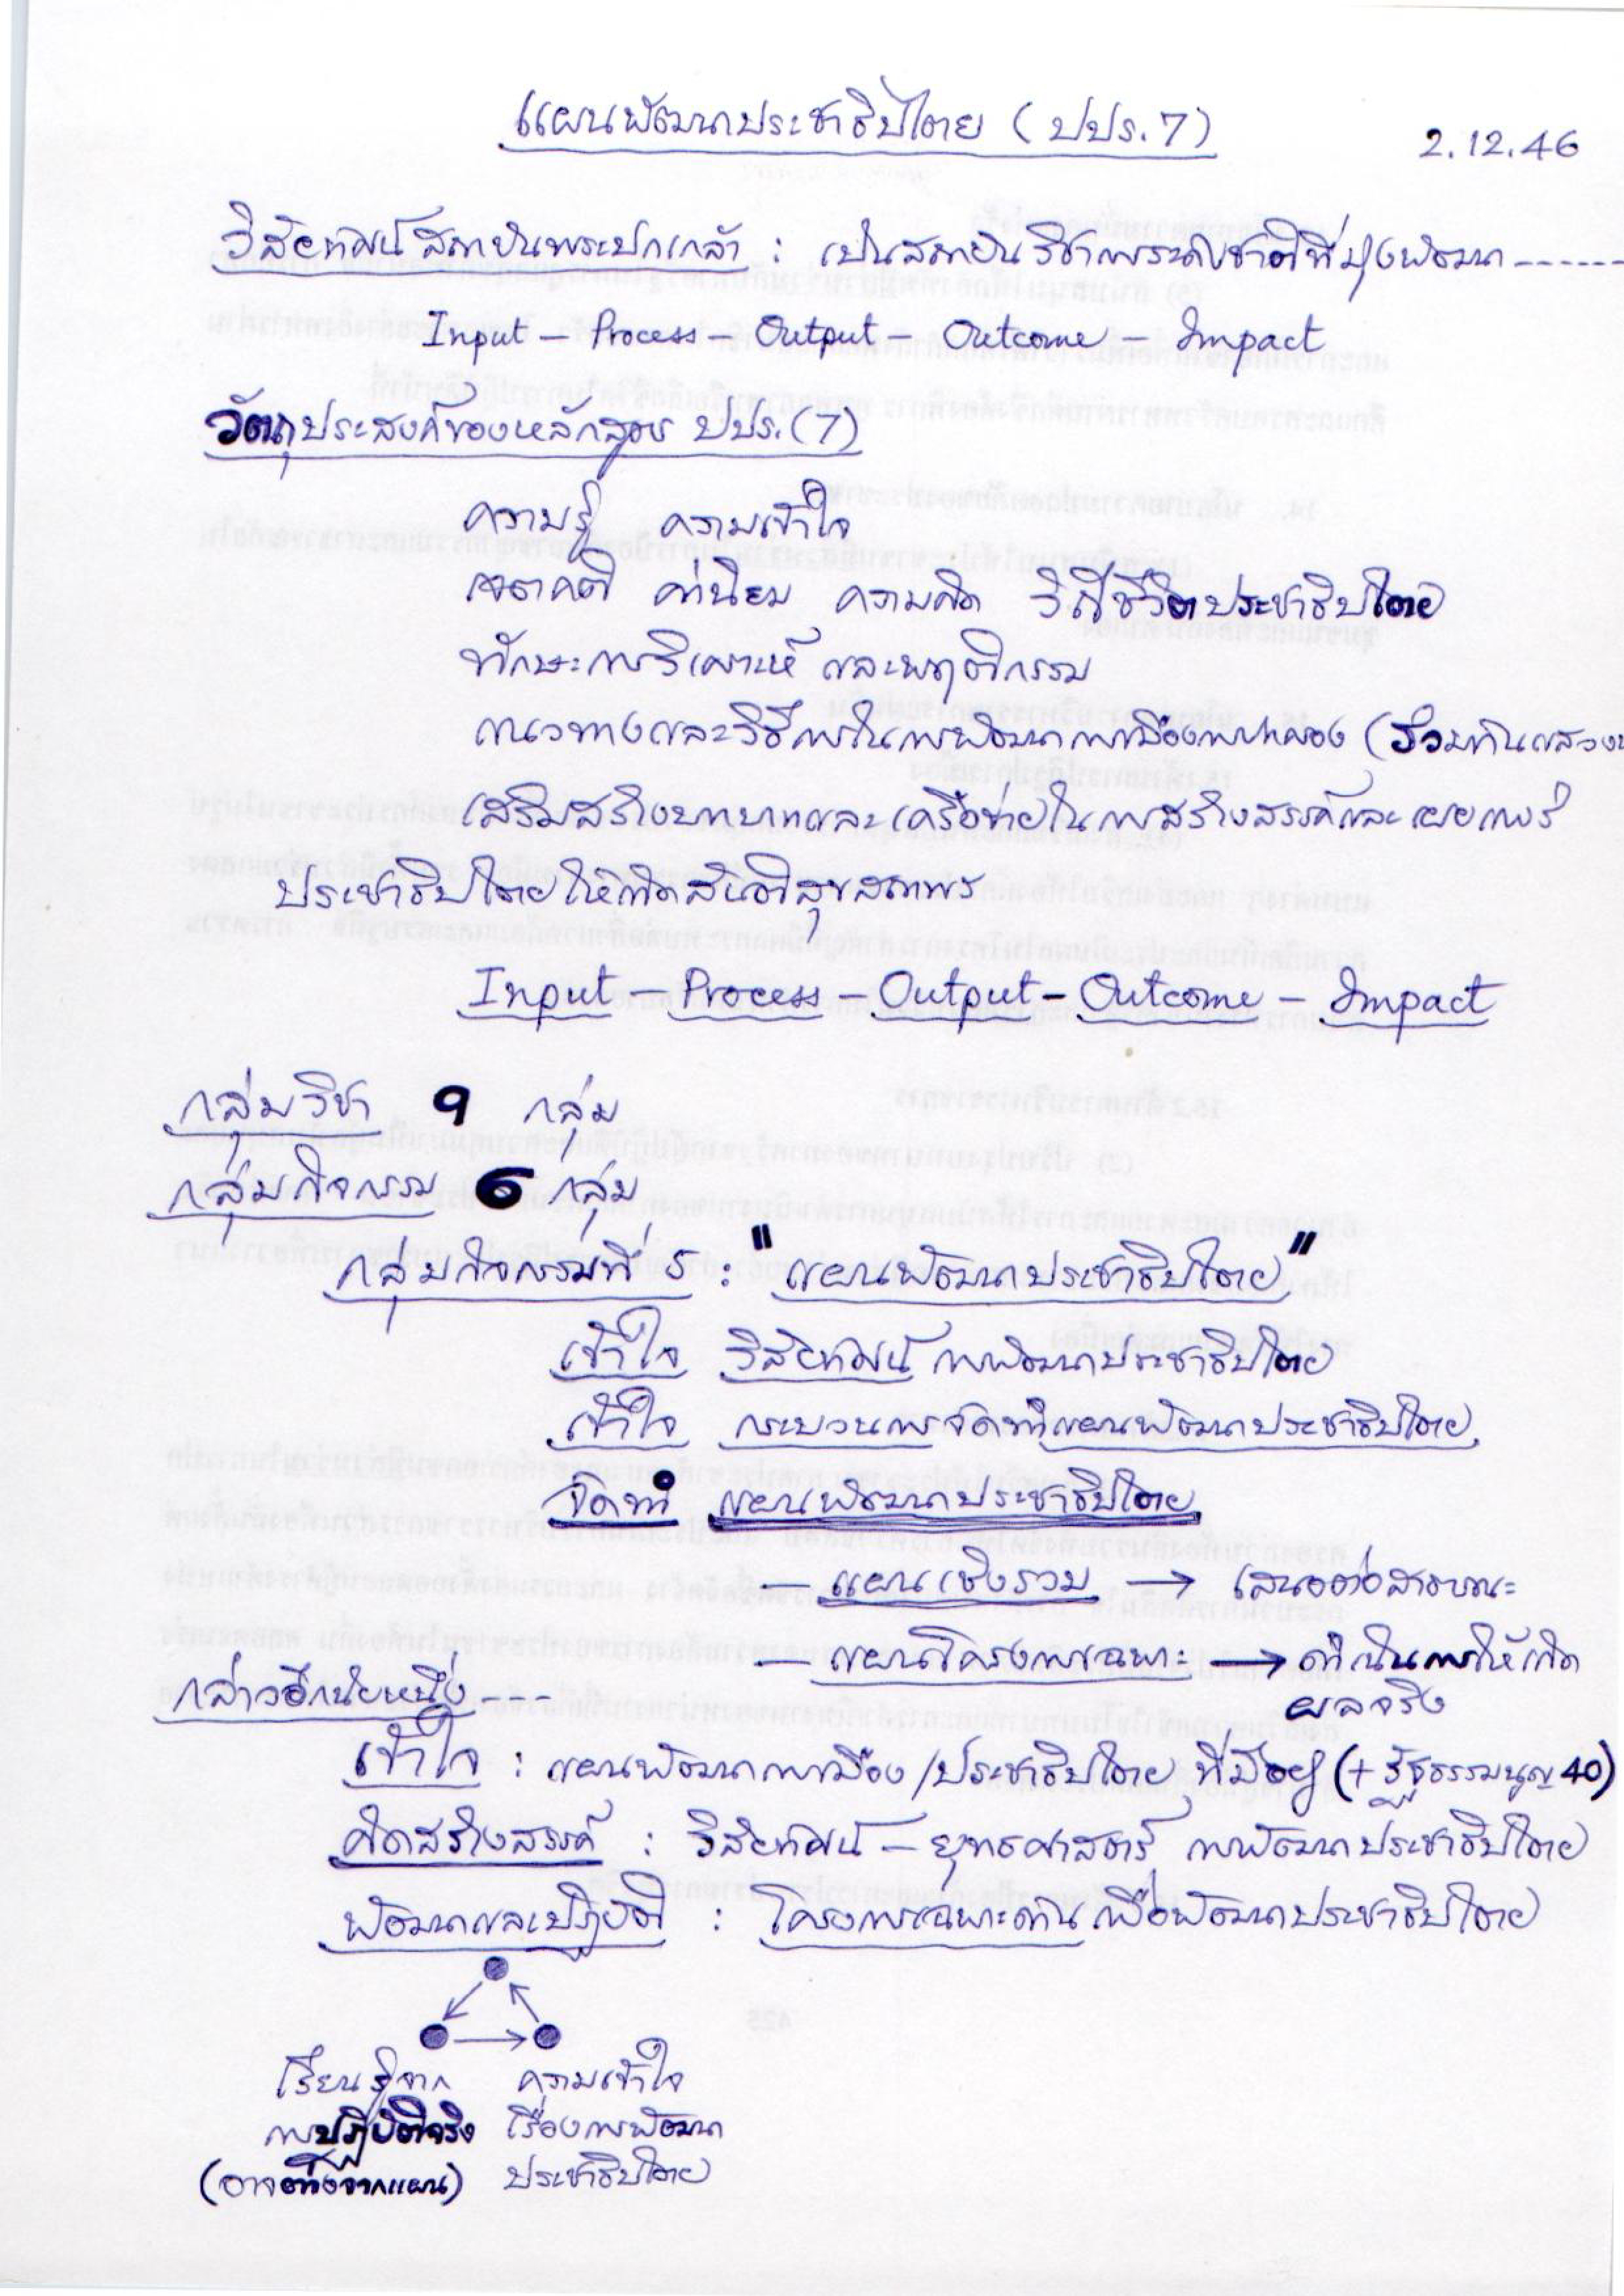 แผนพัฒนาประชาธิปไตย (ปปร.7)
2.12.46
วิสัยทัศน์สถาบันพระปกเกล้า : เป็นสถาบันวิชาการระดับชาติที่มุ่งพัฒนา------
Input – Process – Output – Outcome – Impact
วัตถุประสงค์ของหลักสูตร ปปร.(7)
ความรู้ ความเข้าใจ
เจตคติ ค่านิยม ความคิด วิถีชีวิตประชาธิปไตย
ทักษะการวิเคราะห์ และพฤติกรรม
แนวทางและวิธีการในการพัฒนาการเมืองการปกครอง (ร่วมกันแสวง
เสริมสร้างบทบาทและเครือข่ายในการสร้างสรรค์และเผยแพร่
ประชาธิปไตยให้เกิดสันติสุขสถาพร
Input – Process – Output – Outcome – Impact
กลุ่มวิชา 9 กลุ่ม
กลุ่มกิจกรรม 6 กลุ่ม
กลุ่มกิจกรรมที่ 5 : "แผนพัฒนาประชาธิปไตย"
เข้าใจ วิสัยทัศน์ การพัฒนาประชาธิปไตย
เข้าใจ กระบวนการจัดทำแผนพัฒนาประชาธิปไตย
จัดทำ แผนพัฒนาประชาธิปไตย
– แผนเชิงรวม → เสนอต่อสาธารณะ
– แผนโครงการเฉพาะ → ดำเนินการให้เกิด
ผลจริง
กล่าวอีกนัยหนึ่ง---
เข้าใจ : แผนพัฒนาการเมือง/ประชาธิปไตย ที่มีอยู่ (+ รัฐธรรมนูญ 40)
คิดสร้างสรรค์ : วิสัยทัศน์ – ยุทธศาสตร์ การพัฒนาประชาธิปไตย
พัฒนาและปฏิบัติ : โครงการเฉพาะด้านเพื่อพัฒนาประชาธิปไตย
เรียนรู้จาก ความเข้าใจ
การปฏิบัติจริง เรื่องการพัฒนา
(อาจต่างจากแผน) ประชาธิปไตย